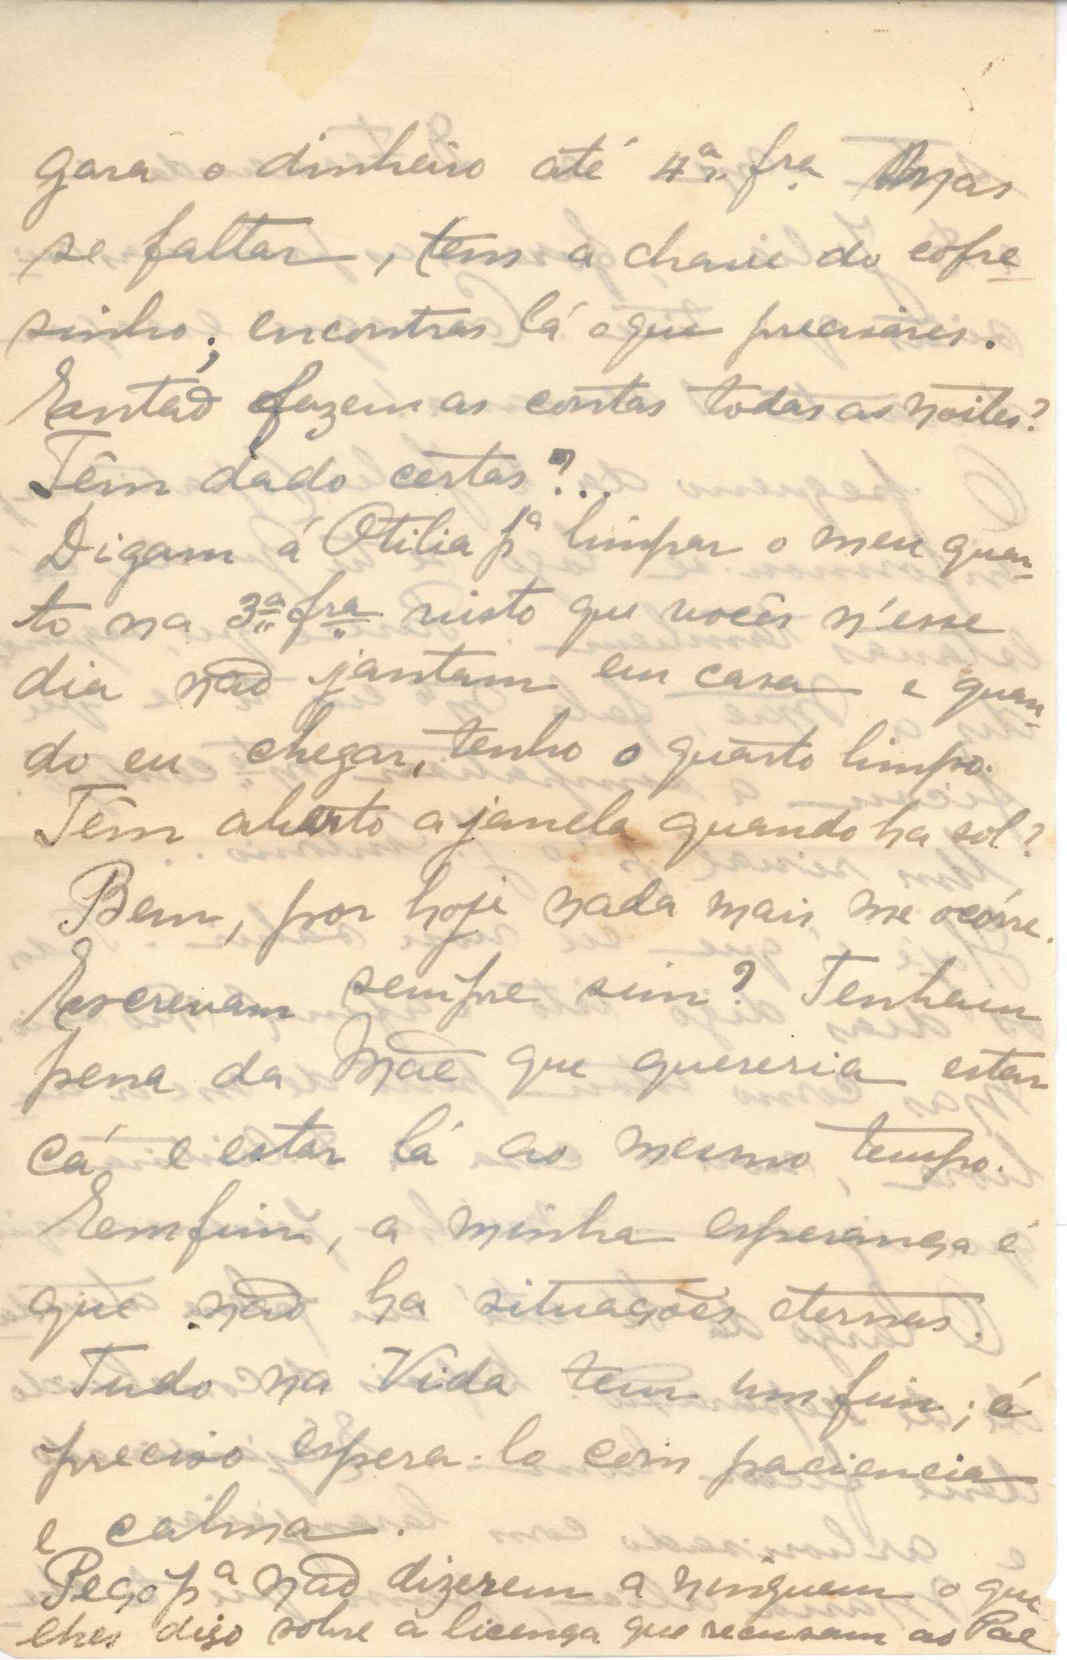 gara o dinheiro até 4ª fra Mas
se faltar, tens a chave do cofre
sinho; encontras lá o que precisares.
Entaõ fazem as contas todas as noites?
Têm dado certas?..
Digam á Otilia pª limpar o meu quar-
to na 3ª fra visto que vocês n'esse
dia naõ jantam em casa e quan-
do eu chegar, tenho o quarto limpo.
Têm aberto a janela quando ha sol?
Bem, por hoje nada mais me ocórre.
Escrevam sempre sim? Tenham
pena da Mãe que quereria estar
cá e estar lá ao mesmo tempo.
Emfim, a minha esperança é
que naõ ha situações eternas.
Tudo na Vida tem um fim; é
preciso espera-lo com paciencia
e calma.
Peço pª naõ dizerem a ninguem o que
lhes digo sobre a licença que recusam ao Pae